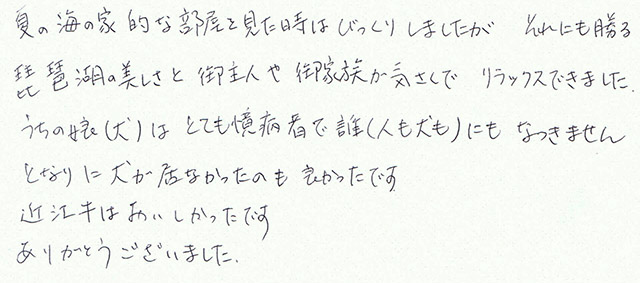 夏の海の家的な部屋を見た時はびっくりしましたが それにも勝る
琵琶湖の美しさと御主人や御家族が気さくでリラックスできました.
うちの娘(犬)はとても憶病者で誰(人も犬も)にもなつきません
となりに犬が居なかったのも良かったです
近江牛はおいしかったです
ありがとうございました.